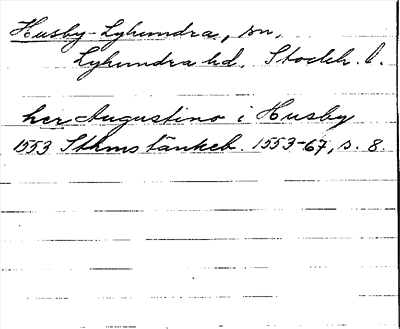 Husby-Lyhundra, sn,
Lyhundra hd, Stockh. l.
her Augustino i Husby
1553 Sthms tänkeb. 1553-67, s. 8.